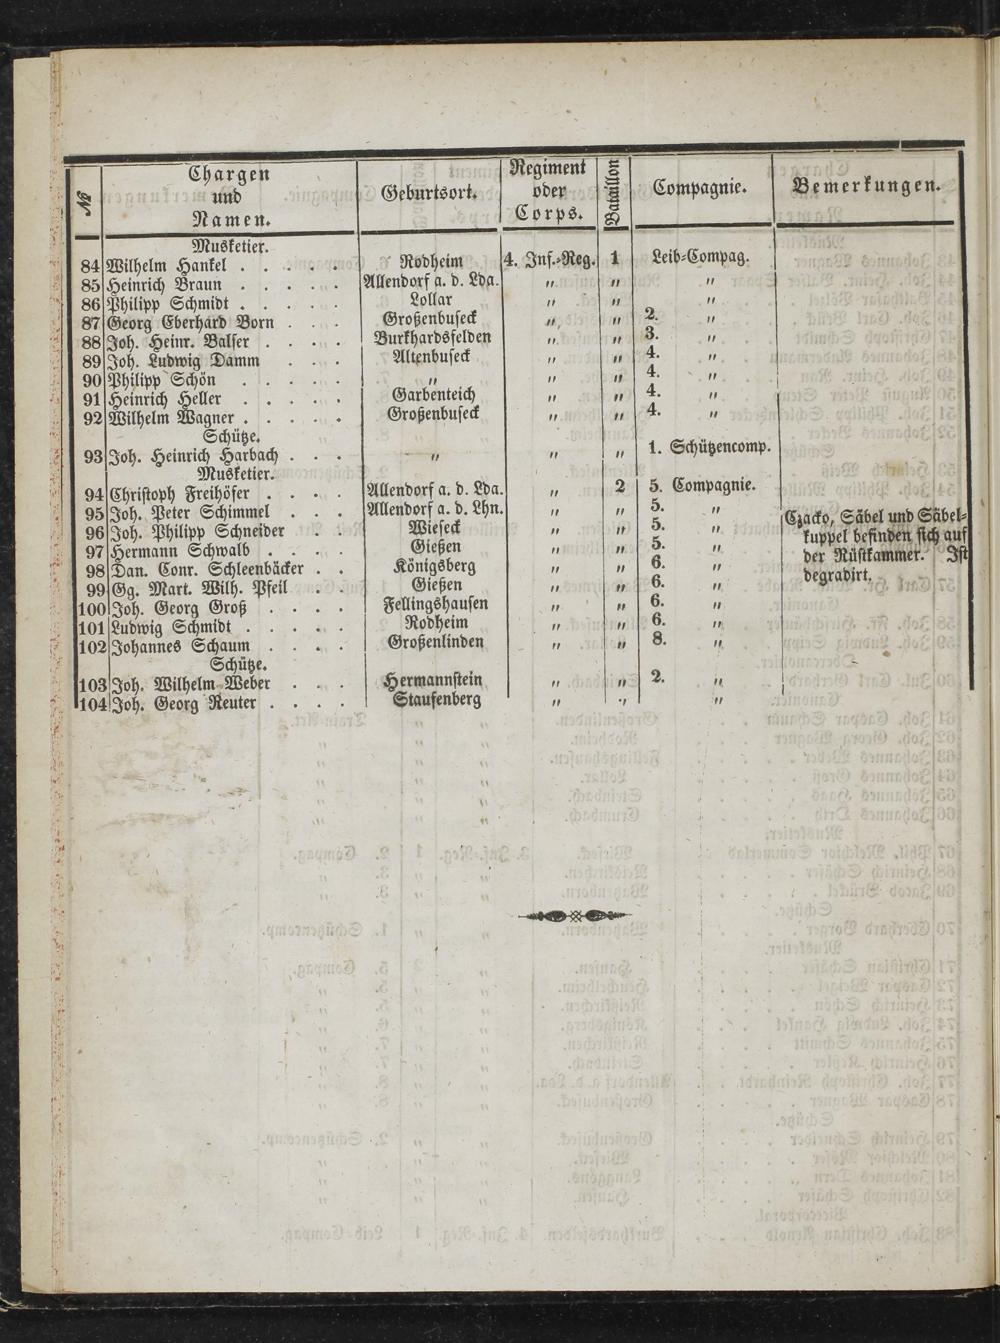 № Chargen und Namen. Geburtsort. Regiment oder Corps. Bataillon Compagnie. Bemerkungen.
Musketier.
84 Wilhelm Hankel . . . . . Rodheim 4. Inf.-Reg. 1 Leib-Compag.
85 Heinrich Braun . . . . . Allendorf a. d. Lda. „ „ „
86 Philipp Schmidt . . . . . Lollar „ „ „
87 Georg Eberhard Born . . . Großenbuseck „ „ 2. „
88 Joh. Heinr. Balser . . . . Burkhardsfelden „ „ 3. „
89 Joh. Ludwig Damm . . . Altenbuseck „ „ 4. „
90 Philipp Schön . . . . . „ „ „ 4. „
91 Heinrich Heller . . . . . Garbenteich „ „ 4. „
92 Wilhelm Wagner . . . . . Großenbuseck „ „ 4. „
Schütze.
93 Joh. Heinrich Harbach . . . „ „ „ 1. Schützencomp.
Musketier.
94 Christoph Freihöfer . . . . Allendorf a. d. Lda. „ 2 5. Compagnie.
95 Joh. Peter Schimmel . . . Allendorf a. d. Lhn. „ „ 5. „
96 Joh. Philipp Schneider . . Wieseck „ „ 5. „ Czacko, Säbel und Säbel-
97 Hermann Schwalb . . . . Gießen „ „ 5. „ kuppel befinden sich auf
98 Dan. Conr. Schleenbäcker . . Königsberg „ „ 6. „ der Rüstkammer. Ist
99 Gg. Mart. Wilh. Pfeil . . Gießen „ „ 6. „ degradirt.
100 Joh. Georg Groß . . . . Fellingshausen „ „ 6. „
101 Ludwig Schmidt . . . . . Rodheim „ „ 6. „
102 Johannes Schaum . . . . Großenlinden „ „ 8. „
Schütze.
103 Joh. Wilhelm Weber . . . Hermannstein „ „ 2. „
104 Joh. Georg Reuter . . . . Staufenberg „ „ „